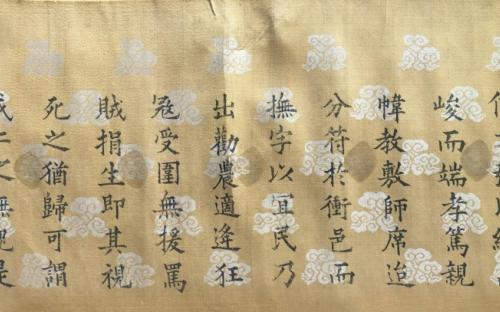 峻而端孝篤親
幃教敷師席迨
分符於衝邑而
撫字以宜民乃
出勸農適逢狂
寇受圍無援罵
賊捐生即其視
死之猶歸可謂
成仁之無愧是